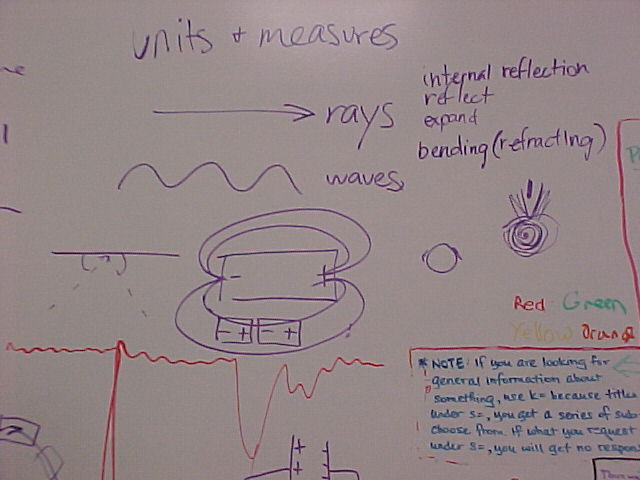 units + measures
internal reflection
reflect
rays
expand
bending (refracting)
waves
- +
- + - +
Red Green
Yellow Orange
* NOTE: If you are looking for
general information about
something, use k= because titles
under s=, you get a series of sub
choose from. If what you request
under s=, you will get no respon
+
+